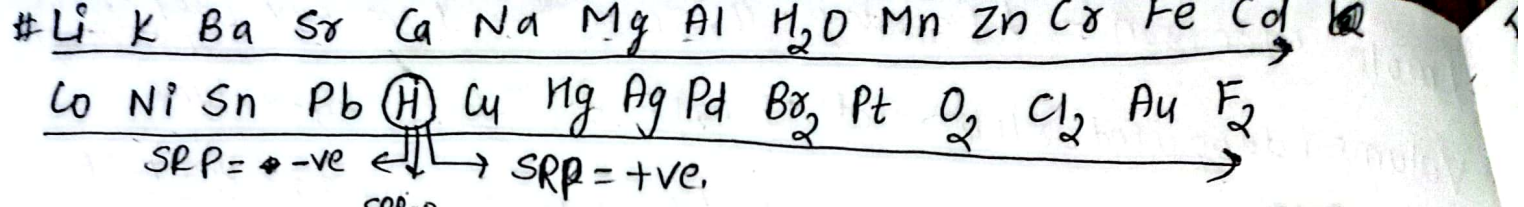 # Li K Ba Sr Ca Na Mg Al H₂O Mn Zn Cr Fe Cd
Co Ni Sn Pb H Cu Hg Ag Pd Br₂ Pt O₂ Cl₂ Au F₂
SRP = -ve SRP = +ve.